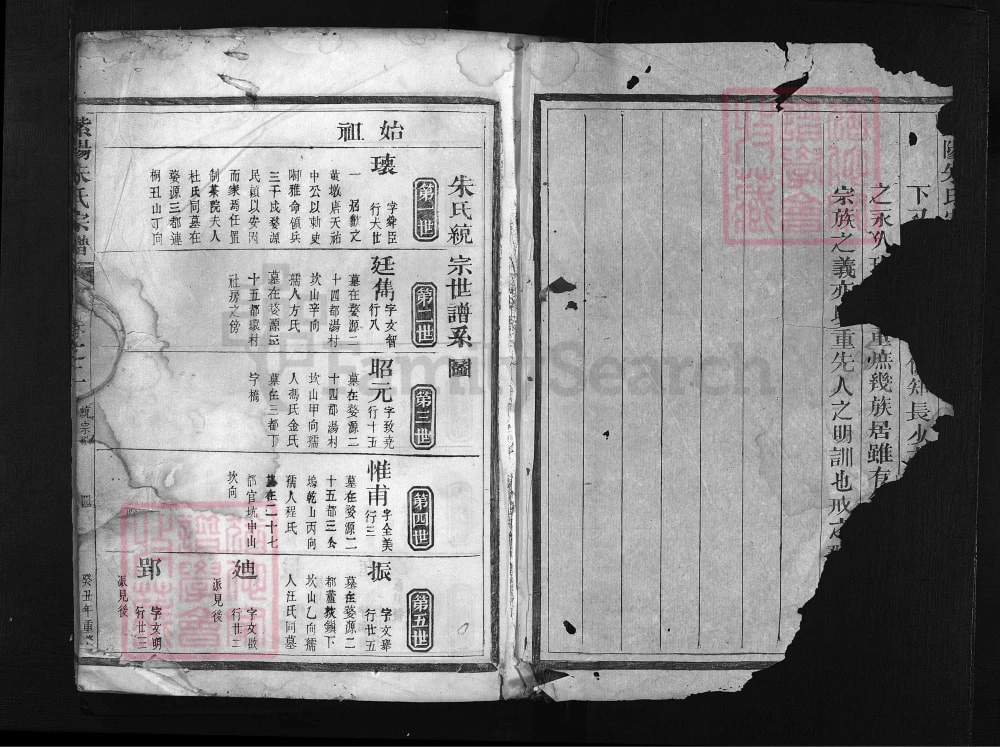 下
之永久
重庶幾族居雖有
宗族之義亦
重先人之明訓也戒之
朱氏統宗世譜系圖
始祖
第一世
瓌
字舜臣
行大世
一
黃墩唐天祐
中公以刺史
陶雅命領兵
三千戍婺源
民賴以安因
而家焉任置
制茶院夫人
杜氏同墓在
婺源三都連
桐丑山丁向
第二世
廷雋
字文智
行八
墓在婺源二
十四都湯村
坎山辛向
孺人方氏
墓在婺源
十五都環村
社房之傍
第三世
昭元
字致堯
行十五
墓在婺源二
十四都湯村
坎山甲向孺
人馮氏金氏
墓在三都丁
字橋
第四世
惟甫
字全美
行三
墓在婺源二
十五都三公
塢乾山丙向
孺人程氏
墓在二十七
都官坑申山
坎向
第五世
振
字文舉
行廿五
墓在婺源二
都蘆
鎮下
坎山乙向孺
人汪氏同墓
廸
行廿二
派見後
郢
字文明
行廿三
派見後
紫陽朱氏宗譜
統宗
癸丑年重
FamilySearch